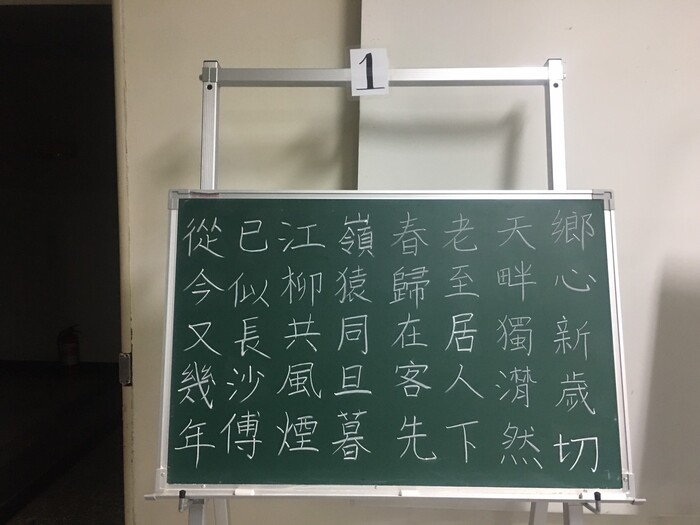 1
鄉心新歲切
天畔獨潸然
老至居人下
春歸在客先
嶺猿同旦暮
江柳共風煙
已似長沙傅
從今又幾年